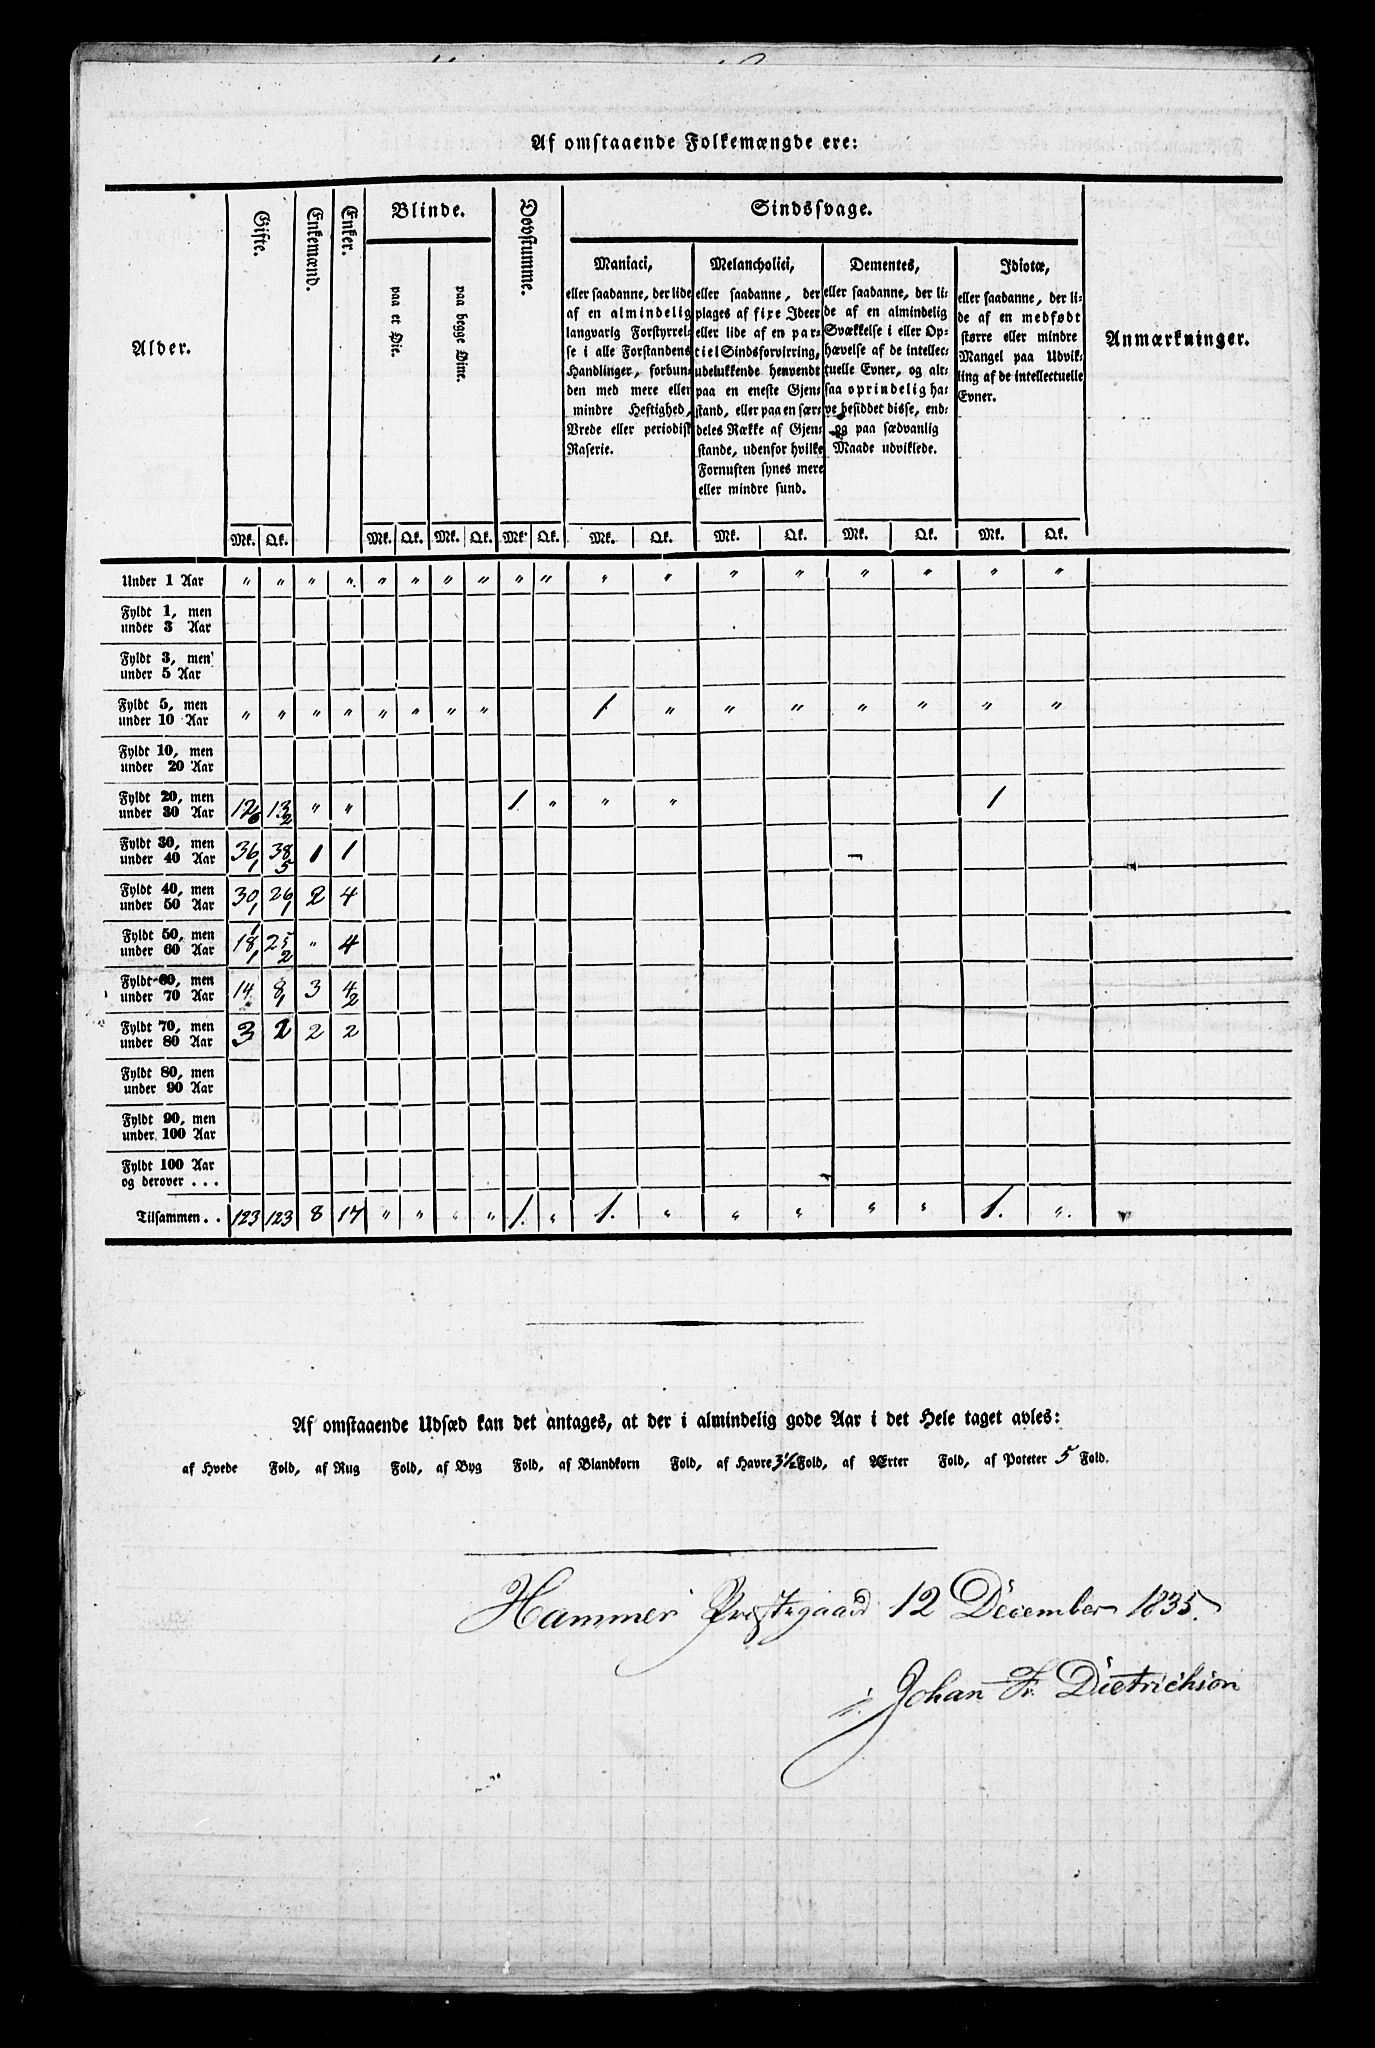 Af omstaaende Folkemængde ere:
Alder.
Gifte.
Enkemænd.
Enker.
Blinde.
paa et Øie.
paa begge Øine.
Døvstumme.
Sindssvage.
Maniaci,
eller saadanne, der lide
af en almindelig
langvarig Forstyrrel-
se i alle Forstandens
Handlinger, forbun-
den med mere eller
mindre Heftighed,
Vrede eller periodisk
Raserie.
Melancholici,
eller saadanne, der
plages af fixe Ideer
eller lide af en par-
tiel Sindsforvirring,
udelukkende henvendt
paa en eneste Gjen-
stand, eller paa en sær-
deles Række af Gjen-
stande, udenfor hvilke
Fornuften synes mere
eller mindre sund.
Dementes,
eller saadanne, der li-
de af en almindelig
Svækkelse i eller Op-
hævelse af de intellec-
tuelle Evner, og alt-
saa oprindelig ha-
ve besiddet disse, end-
og paa sædvanlig
Maade udviklede.
Idiotæ,
eller saadanne, der li-
de af en medfødt
større eller mindre
Mangel paa Udvik-
ling af de intellectuelle
Evner.
Anmærkninger.
Mk. Qk. Mk. Qk. Mk. Qk. Mk. Qk. Mk. Qk. Mk. Qk. Mk. Qk. Mk. Qk.
Under 1 Aar " " " " " " " " " " " " " " " " " "
Fyldt 1, men
under 3 Aar
Fyldt 3, men
under 5 Aar
Fyldt 5, men
under 10 Aar " " " " " " " " 1 " " " " " " "
Fyldt 10, men
under 20 Aar
Fyldt 20, men
under 30 Aar 12 13 " " 1. " " " 1
6 2
Fyldt 30, men
under 40 Aar 36 38 1 1
1 5
Fyldt 40, men
under 50 Aar 30 26 2 4
1 1
Fyldt 50, men
under 60 Aar 18 25 " 4
1 2
Fyldt 60, men
under 70 Aar 14 8 3 4
1 2
Fyldt 70, men
under 80 Aar 3 2 2 2
Fyldt 80, men
under 90 Aar
Fyldt 90, men
under 100 Aar
Fyldt 100 Aar
og derover . . .
Tilsammen . . 123 123 8 17 " " " " 1. " 1. " " " " " 1. "
Af omstaaende Udsæd kan det antages, at der i almindelig gode Aar i det Hele taget avles:
af Hvede Fold, af Rug Fold, af Byg Fold, af Blandkorn Fold, af Havre 3½ Fold, af Ærter Fold, af Poteter 5 Fold.
Hammer Præstegaard 12 December 1835.
Johan Fr. Dietrichson